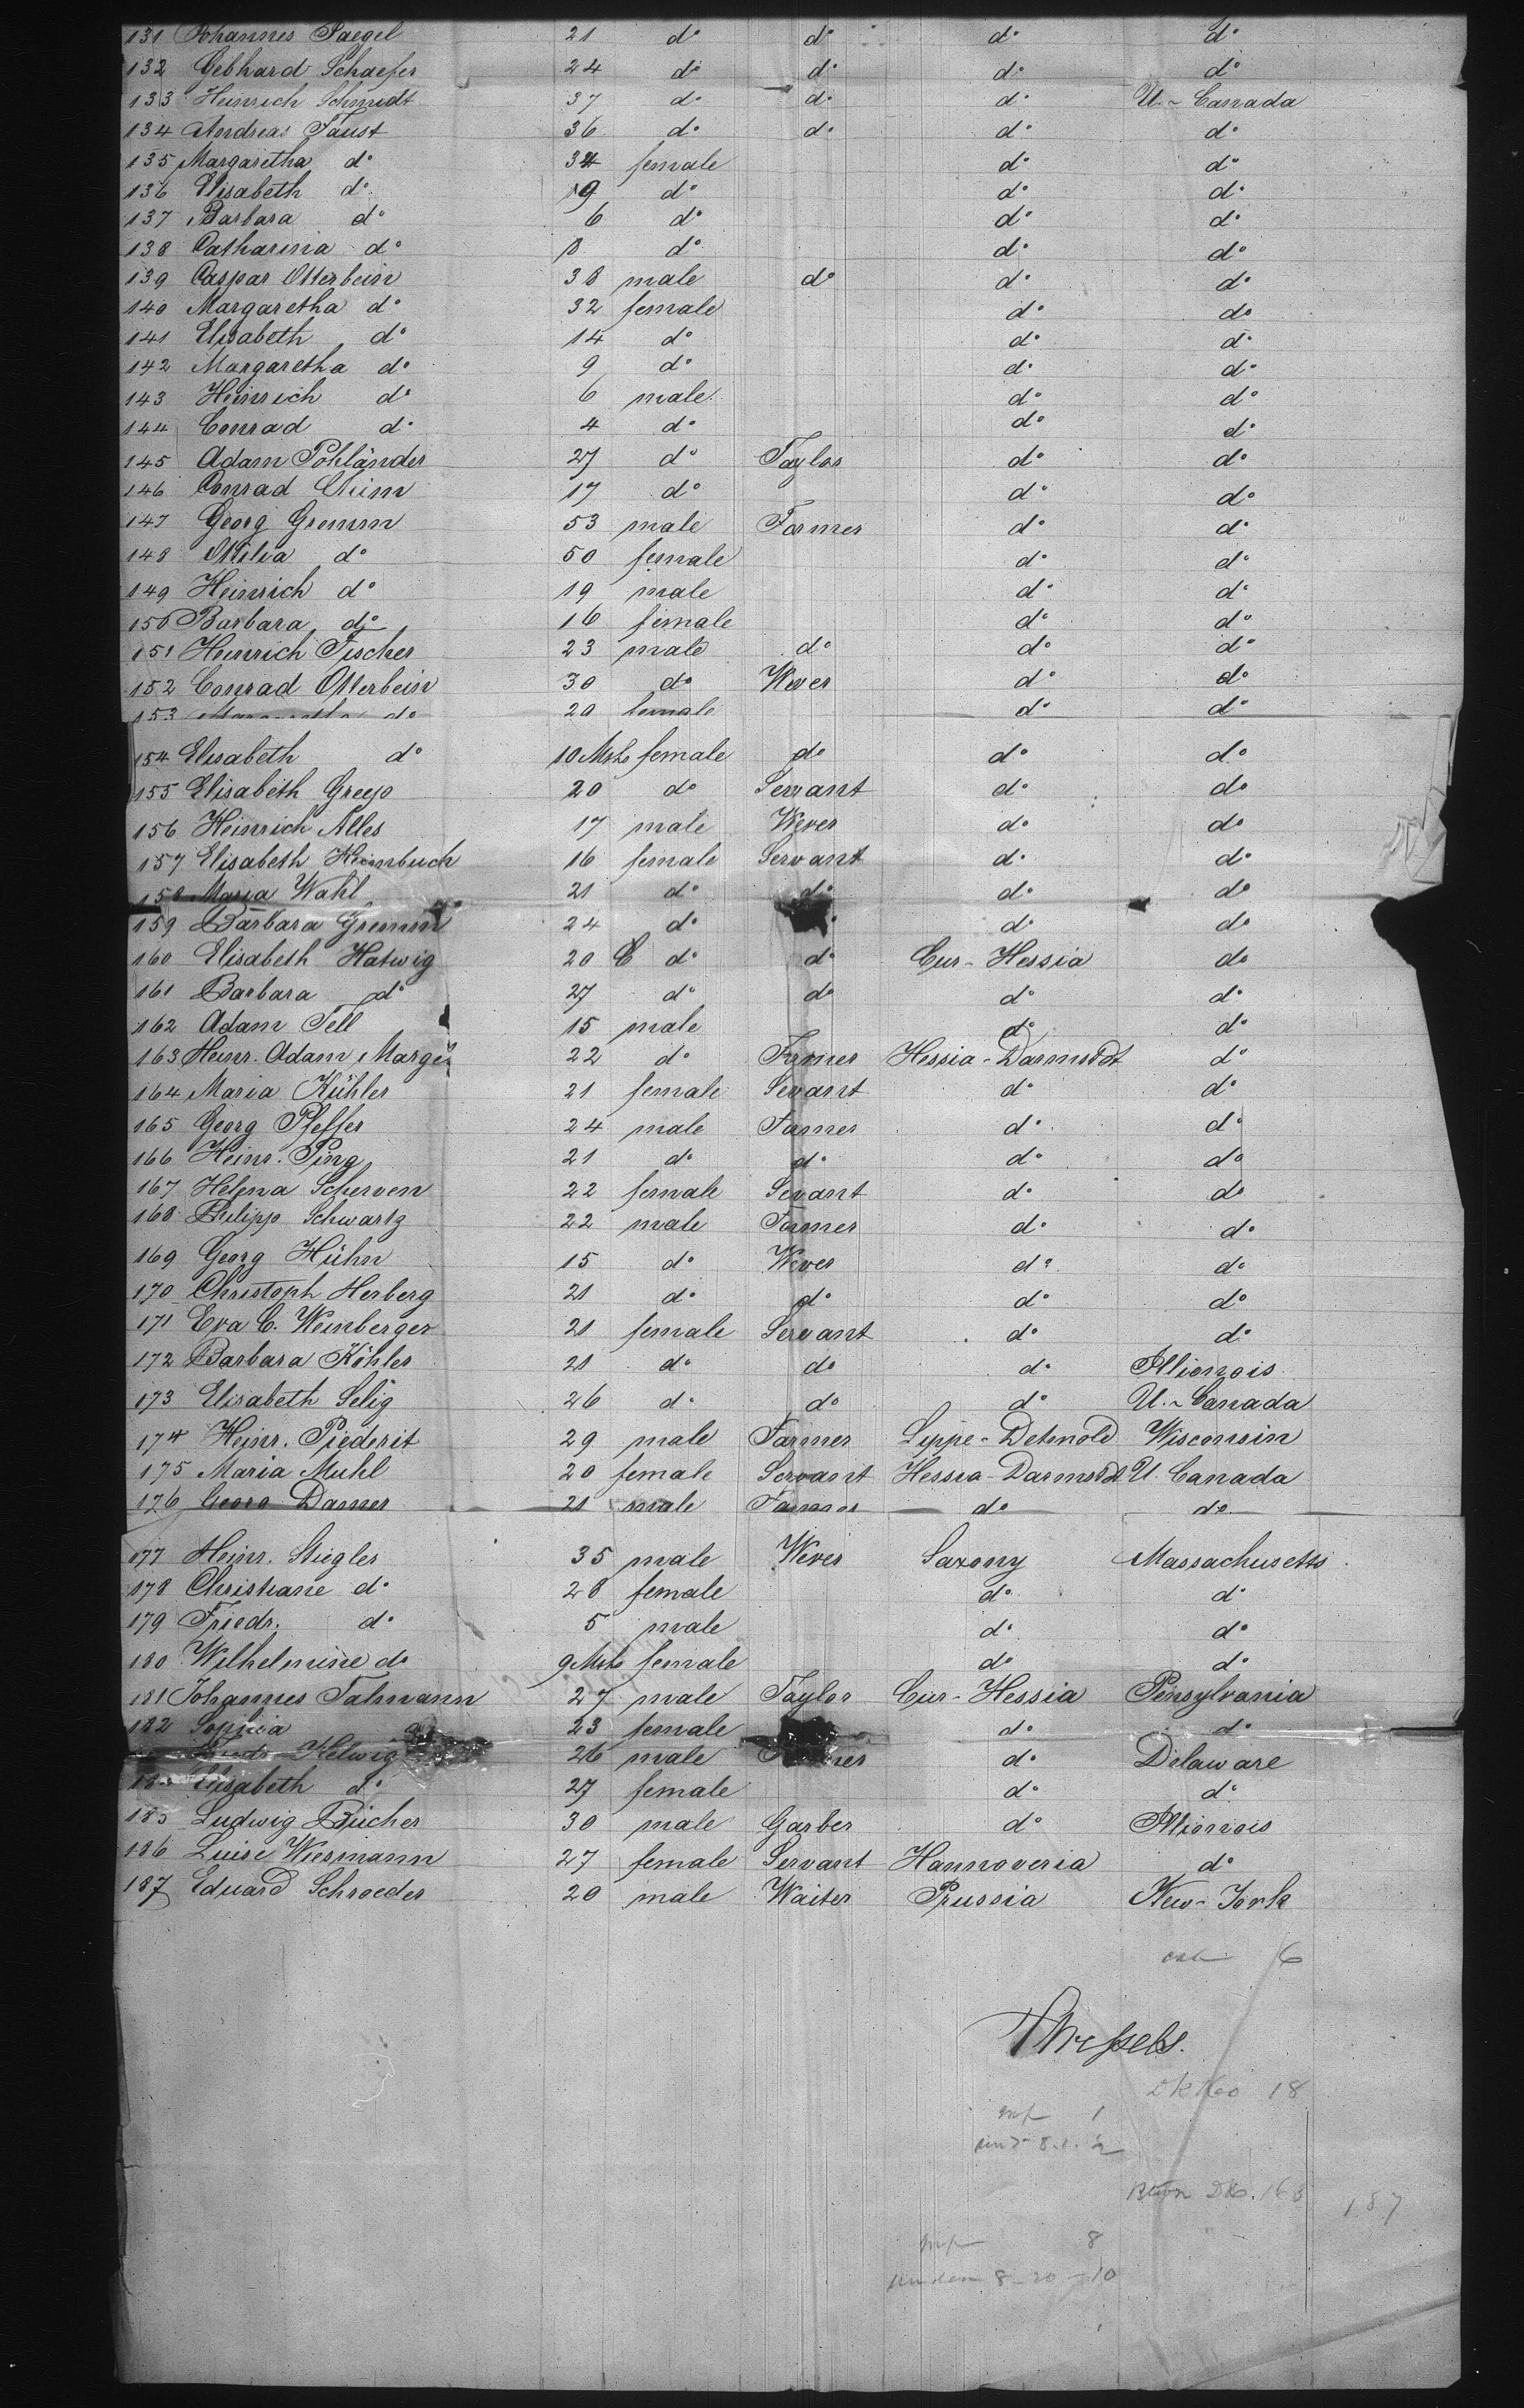 131 Johannes Paegel 21 do do do do
132 Gebhard Schaefer 24 do do do do
133 Heinrich Schmidt 37 do do do U.- Canada
134 Andreas Faust 36 do do do do
135 Margaretha do 34 female do do
136 Elisabeth do 9 do do do
137 Barbara do 6 do do do
138 Catharina do do do do
139 Caspar Otterbein 38 male do do do
140 Margaretha do 32 female do do
141 Elisabeth do 14 do do do
142 Margaretha do 9 do do do
143 Heinrich do 6 male do do
144 Conrad do 4 do do do
145 Adam Pohländer 27 do Taylor do do
146 Conrad 17 do do do
147 Georg Gremm 53 male Farmer do do
148 Ottilia do 50 female do do
149 Heinrich do 19 male do do
150 Barbara do 16 female do do
151 Heinrich Fischer 23 male do do do
152 Conrad Otterbein 30 do Wever do do
153 Margaretha do 20 female do do
154 Elisabeth do 10 Mths female do do do
155 Elisabeth Greep 20 do Servant do do
156 Heinrich Alles 17 male Wever do do
157 Elisabeth Heimbuch 16 female Servant do do
158 Maria Wahl 21 do do do do
159 Barbara Gremm 24 do do do
160 Elisabeth Hatwig 20 do do Cur-Hessia do
161 Barbara do 27 do do do do
162 Adam Fell 15 male do do
163 Heinr. Adam 22 do Farmer Hessia-Darmstdt do
164 Maria Kühler 21 female Sevant do do
165 Georg Pfeffer 24 male Farmer do do
166 Heinr. Ping 21 do do do do
167 Helena Scherven 22 female Sevant do do
168 Philipp Schwartz 22 male Farmer do do
169 Georg Hühn 15 do Wever do do
170 Christoph Herberg 21 do do do do
171 Eva C. Weinberger 21 female Servant do do
172 Barbara Köhler 21 do do do Illionois
173 Elisabeth Selig 26 do do do U.- Canada
174 Heinr. Piederit 29 male Farmer Lippe-Detmold Wisconsin
175 Maria Muhl 20 female Servant Hessia-Darmstdt U. Canada
176 Georg Damer 21 male Farmer do do
177 Heinr. Stiegler 35 male Wever Saxony Massachusetts
178 Christiane do 28 female do do
179 Friedr. do 5 male do do
180 Wilhelmine do 9 Mths female do do
181 Johannes Talmann 27 male Taylor Cur-Hessia Pensylvania
182 Sophia 23 female do do
Helwig 26 male do Delaware
Elisabeth do 27 female do do
185 Ludwig Bücher 30 male Garber do Illionois
186 Luise Wiesmann 27 female Servant Hannoveria do
187 Eduard Schroeder 20 male Waiter Prussia New-York
6
18
1
187
8
8-20-10